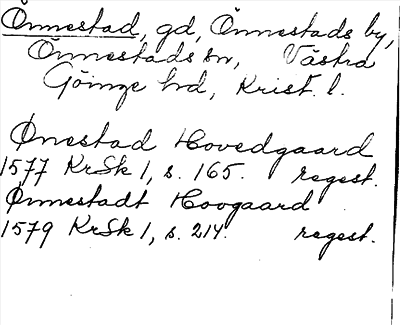 Önnestad, gd, Önnestads by,
Önnestads sn, Västra
Göinge hd, Krist. l.
Ønestad Hovedgaard
1577 KrSk 1, s. 165. regest.
Ønnestadt Hoogaard
1579 KrSk 1, s. 214. regest.